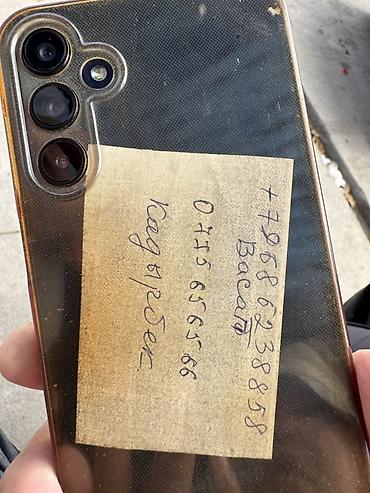 +79686238858
Васап
0755 65 65 66
Кадырбек